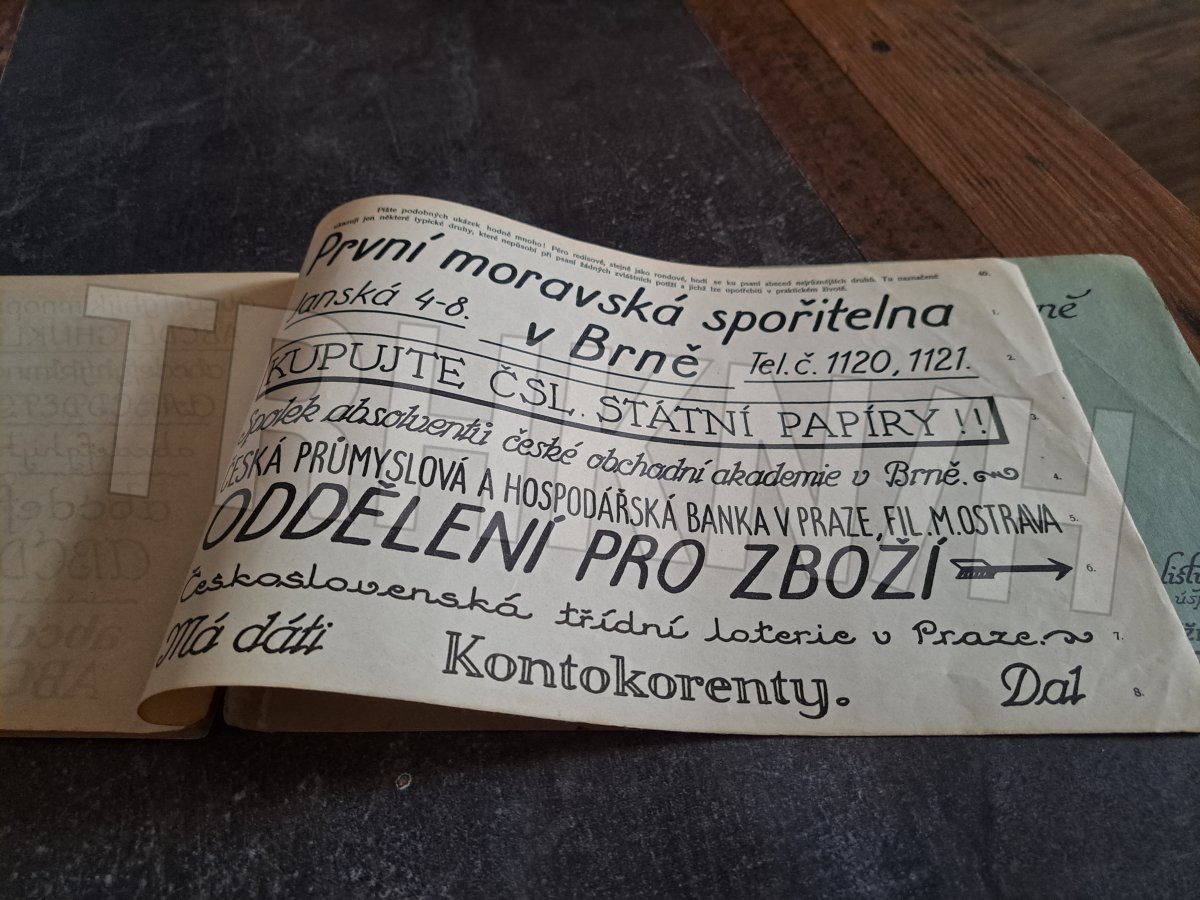 Pište podobných ukázek hodně mnoho! Péro redisové, stejně jako rondové, hodí se ku psaní abeced nejrůznějších druhů. Tu naznačené
ukazují jen některé typické druhy, které nepůsobí při psaní žádných zvláštních potíží a jichž lze upotřebiti v praktickém životě.
40.
První moravská spořitelna
1.
Janská 4-8.
v Brně
Tel. č. 1120, 1121.
2.
KUPUJTE ČSL. STÁTNÍ PAPÍRY!!
3.
Spolek absolventů české obchodní akademie v Brně.
4.
ČESKÁ PRŮMYSLOVÁ A HOSPODÁŘSKÁ BANKA V PRAZE, FIL. M. OSTRAVA
5.
ODDĚLENÍ PRO ZBOŽÍ
6.
Československá třídní loterie v Praze.
7.
Má dáti
Kontokorenty.
Dal
8.
TRHKNIH